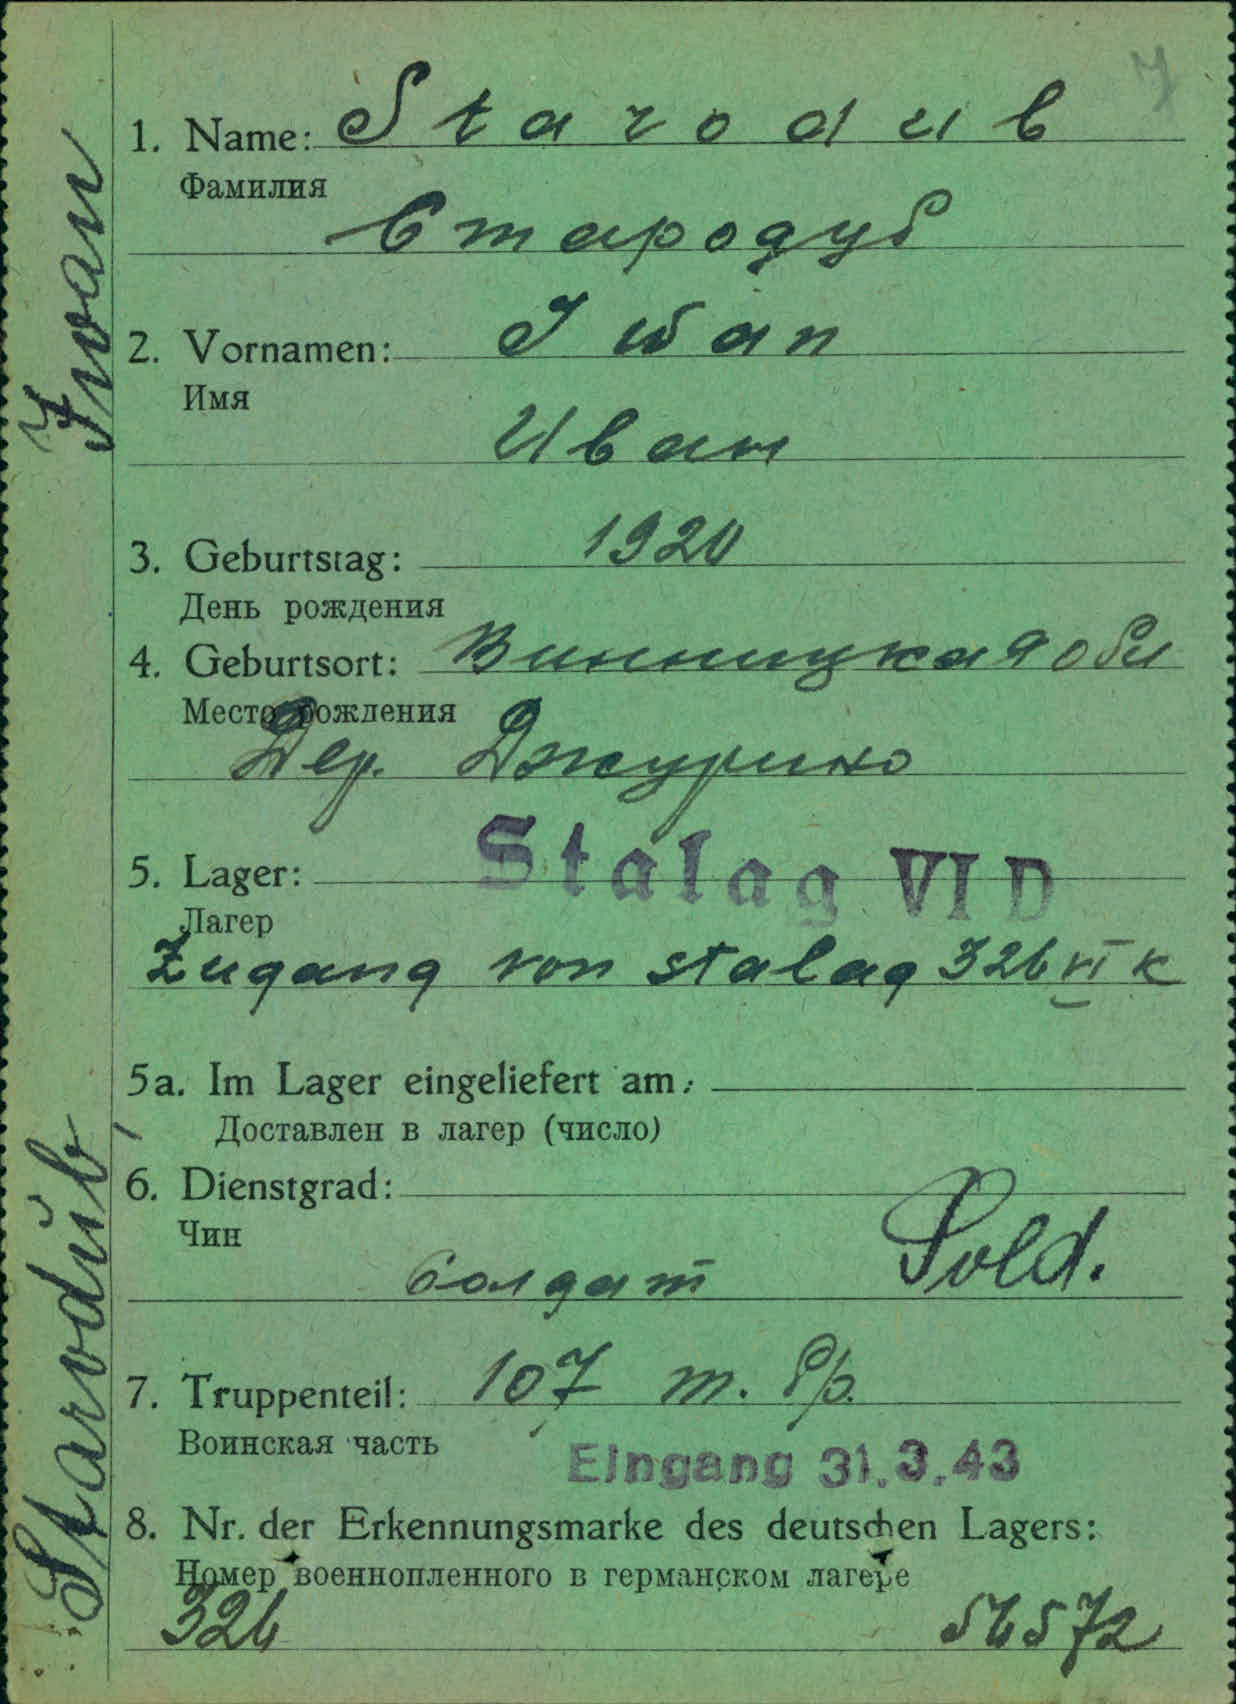 7
1. Name: Starodub
Фамилия
Стародуб
2. Vornamen: Iwan
Имя
Иван
3. Geburtstag: 1920
День рождения
4. Geburtsort: Винницкая обл
Место рождения
Дер. Джурино
5. Lager: Stalag VI D
Лагер
Zugang von stalag 326 VI K
5a. Im Lager eingeliefert am:
Доставлен в лагер (число)
6. Dienstgrad:
Чин
Солдат Sold.
7. Truppenteil: 107 т. бр.
Воинская часть
Eingang 31.3.43
8. Nr. der Erkennungsmarke des deutschen Lagers:
Номер военнопленного в германском лагере
326 56572
Starodub, Iwan